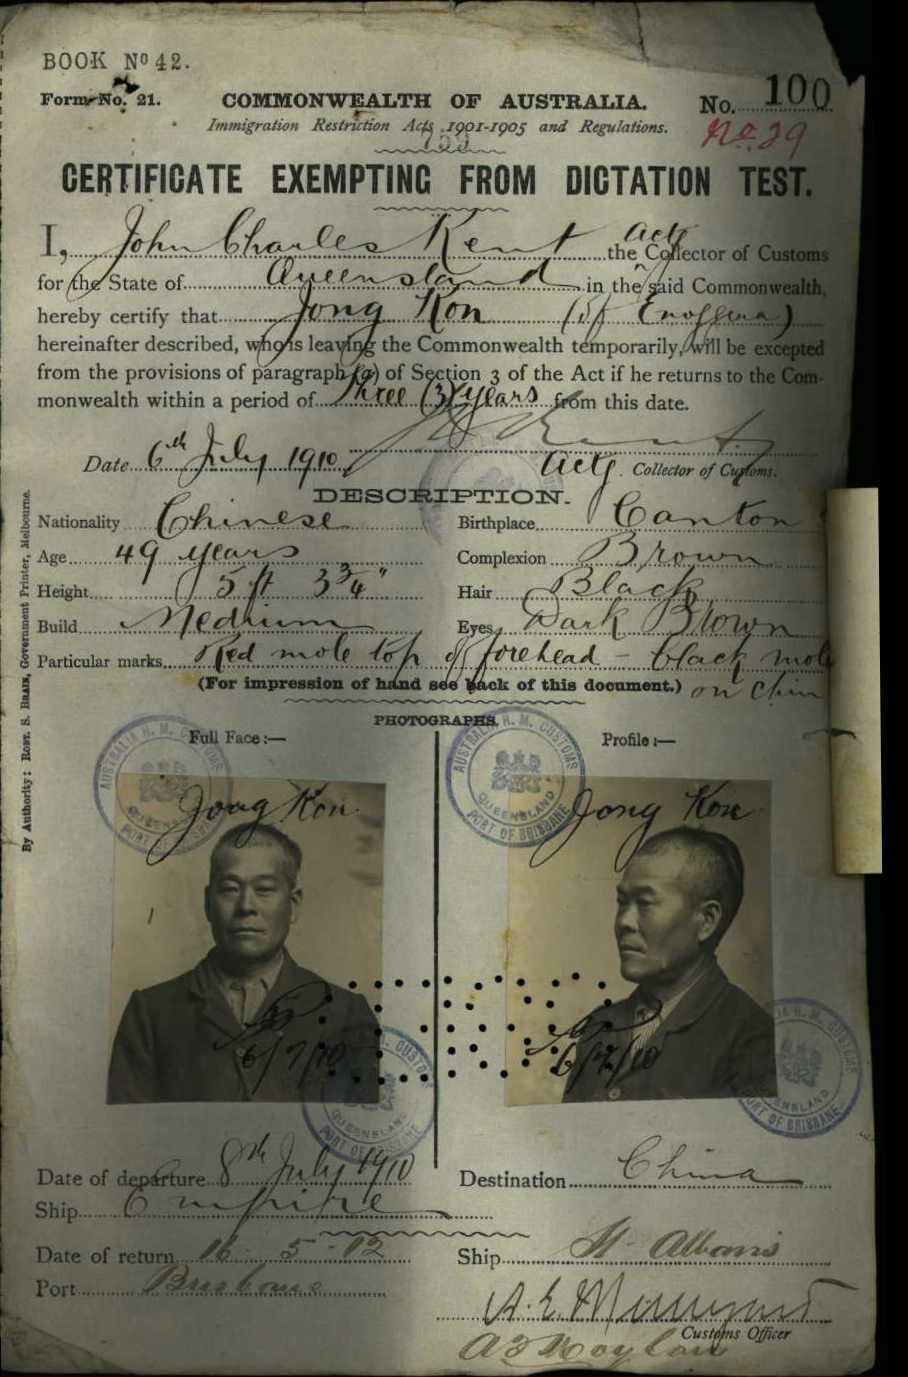 BOOK Nº 42.
Form No. 21. COMMONWEALTH OF AUSTRALIA. No. 100
Immigration Restriction Acts 1901-1905 and Regulations. No. 29
CERTIFICATE EXEMPTING FROM DICTATION TEST.
I, John Charles Kent the Actg Collector of Customs
for the State of Queensland in the said Commonwealth,
hereby certify that Jong Kon (of Enoggera)
hereinafter described, who is leaving the Commonwealth temporarily, will be excepted
from the provisions of paragraph (a) of Section 3 of the Act if he returns to the Com-
monwealth within a period of Three (3) years from this date.
Date 6th July 1910 Kent
Actg. Collector of Customs.
DESCRIPTION.
Nationality Chinese Birthplace Canton
Age 49 years Complexion Brown
Height 5 ft 3 3/4" Hair Black
Build Medium Eyes Dark Brown
Particular marks Red mole top of forehead - black mole
(For impression of hand see back of this document.) on chin
PHOTOGRAPHS.
Full Face :— Profile :—
AUSTRALIA H. M. CUSTOMS QUEENSLAND PORT OF BRISBANE
Jong Kon Jong Kon
6/7/10 6/7/10
Date of departure 8th July 1910 Destination China
Ship Empire
Date of return 16 - 5 - 12 Ship St Albans
Port Brisbane
Customs Officer
By Authority: ROBT. S. BRAIN, Government Printer, Melbourne.